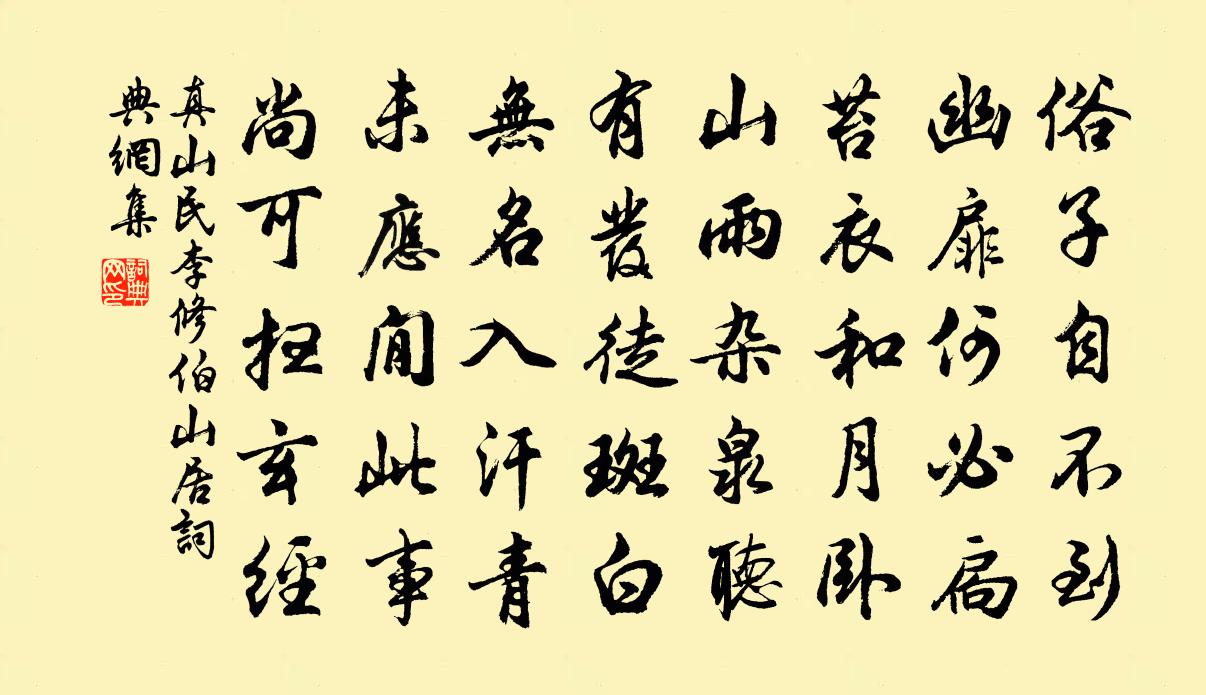 俗子自不到
幽扉何必扃
苔衣和月卧
山雨杂泉聽
有發徒斑白
無名入汗青
未應閒此事
尚可玄經
真山民李修伯山居詞
典網集
詞典
网印